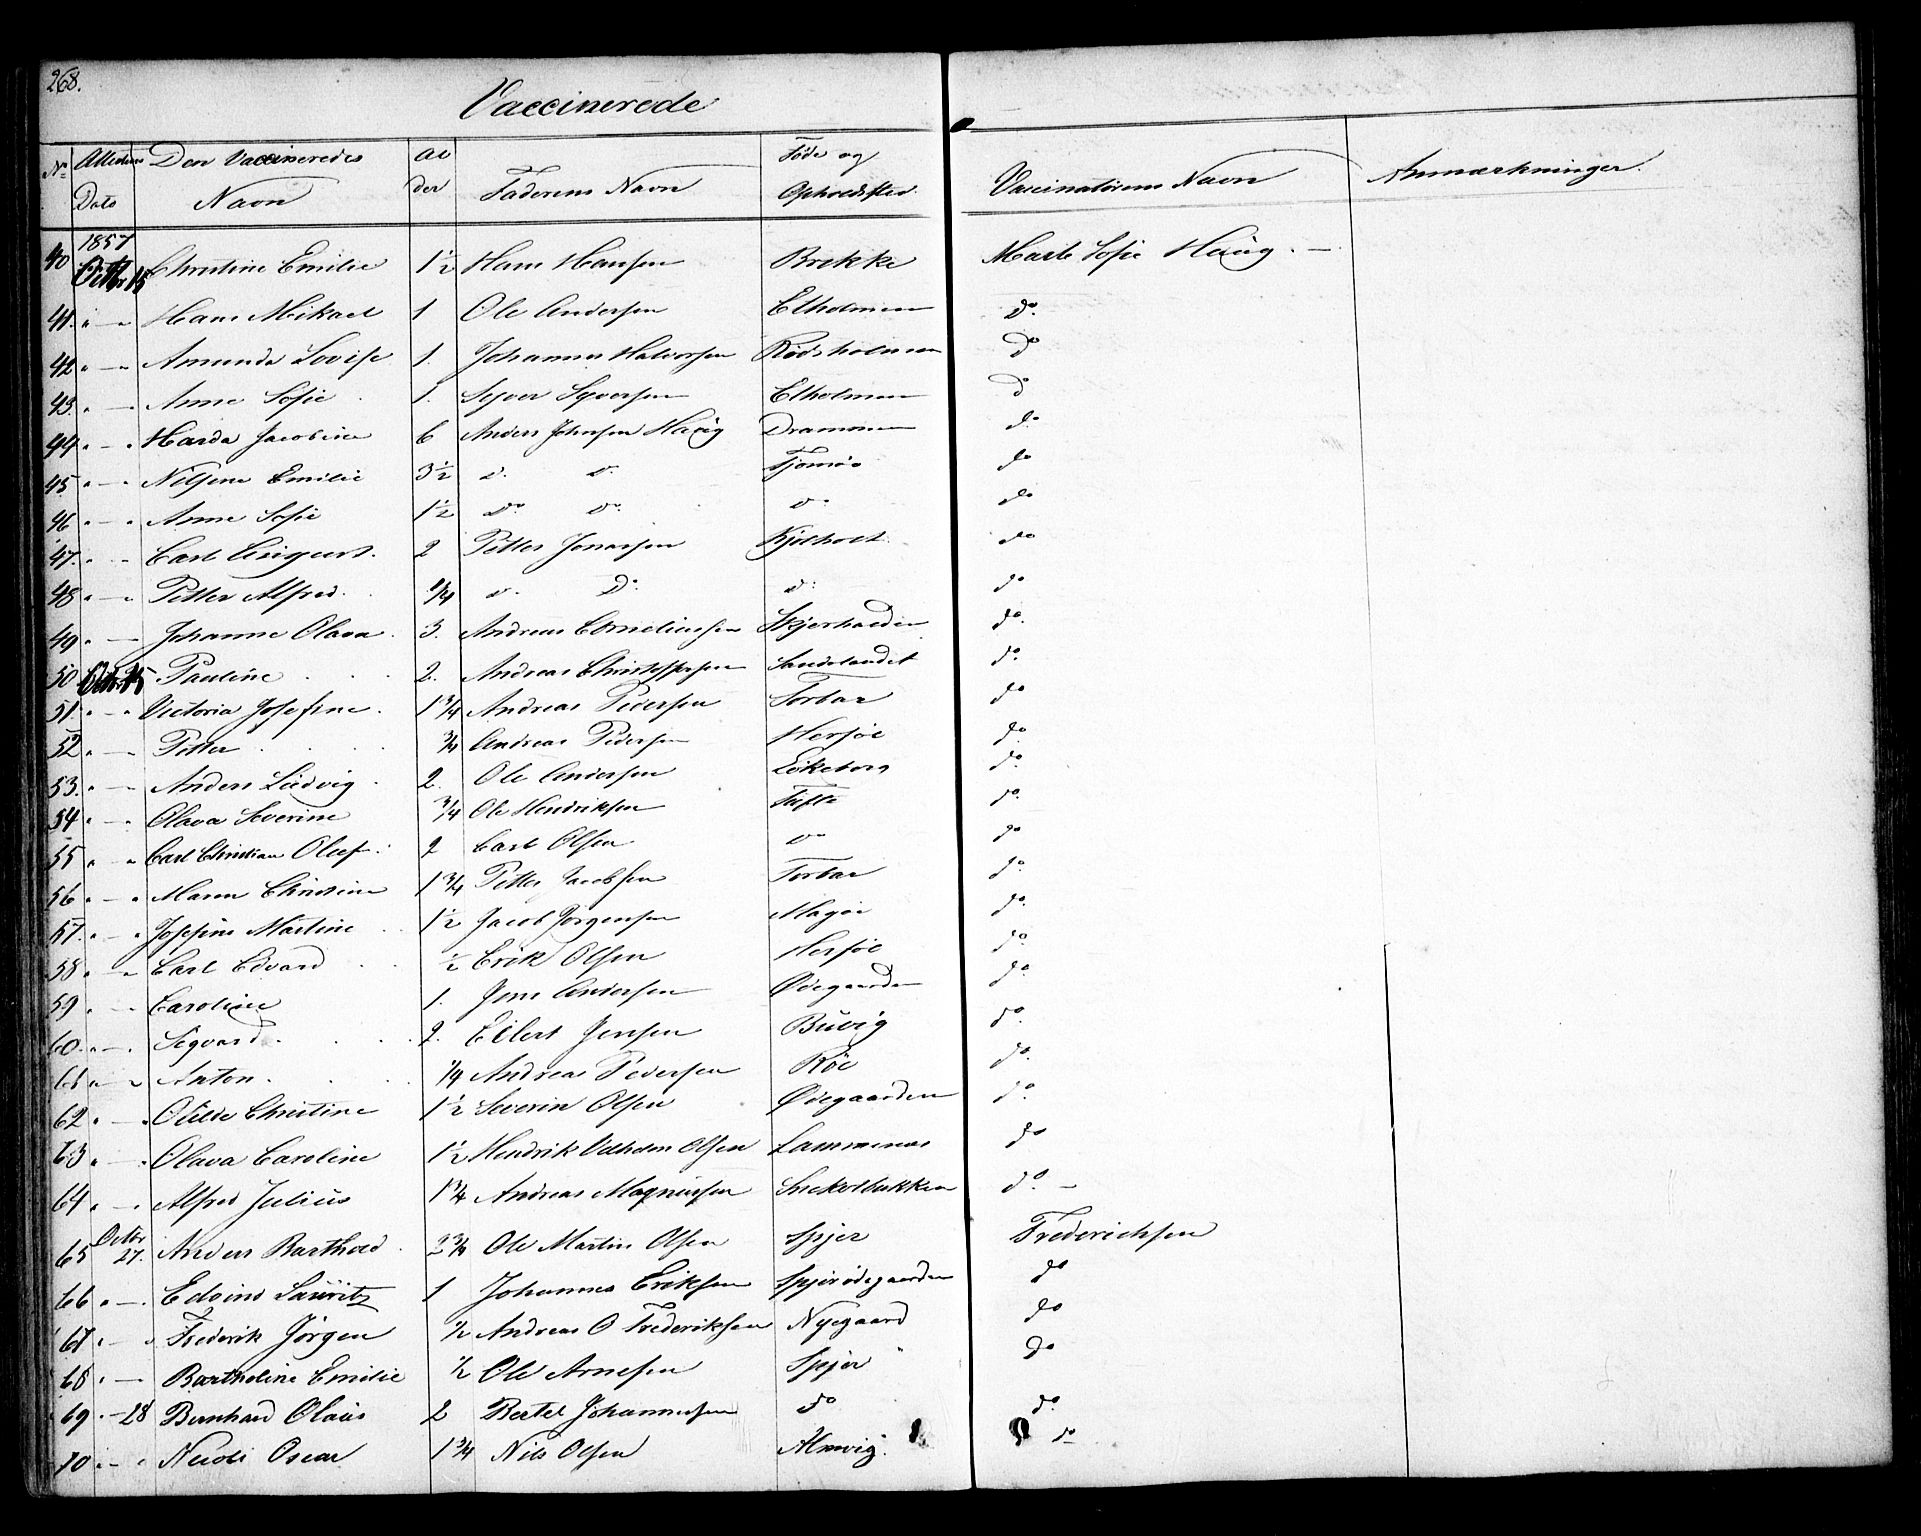 268.
Vaccinerede
No Attestens Dato Den Vaccineredes Navn Alder Faderens Navn Føde og Opholdsted Vaccinatørens Navn Anmærkninger.
1857
40 Octbr 15 Christine Emilie 1½ Hans Hansen Brekke Marte Sofie Haug. —
41. " — " Hans Mikael 1 Ole Andersen Elholmen Do.
42 " — " Amunda Lovise 1. Johannes Halvorsen Rødsholmen do
43. " — " Anne Sofie 1. Syver Syversen Elholmen do
44 " — " Harda Jacobine 6 Anders Johnsen Haug Drammen do
45 " — " Nilsine Emilie 3½ do. do. Tjomøe do
46 " — " Anne Sofie 1½ Do Do. do
47. " — " Carl August. 2 Petter Jonassen Kjølholt do
48 " — " Petter Alfred. ¼ do. Do. do. do
49 " — Johanne Olava. 3. Andreas Corneliussen Skjerhalden do.
50 Octbr 15 Pauline 2. Andreas Christophersen Sandslandet do.
51. " — " Victoria Josefine. 1¾ Andreas Pedersen Torbar do
52 " — Petter ¾ Andreas Pedersen Herføl do.
53. " — Anders Ludvig. 2. Ole Andersen Løkeborg do.
54 " — Olava Severine ¾ Ole Hendriksen Tufte do.
55 " — " Carl Christian Oluf. 2 Carl Olsen do do
56 " — " Maren Christine 1¾ Petter Jacobsen Torbar do.
57. " — " Josefine Martine 1½ Jacob Jørgensen Magøe do.
58 " — " Carl Edvard ½ Erik Olsen Herføl do.
59 " — Caroline 1. Jens Andersen Ødegaarden do.
60. " — Sigvard. 2. Eilert Jensen Buvig do.
61 " — " Anton. ¼ Andreas Pedersen Røe do.
62 " — " Otilde Christine 1½ Severin Olsen Ødegaarden do.
63 " — " Olava Caroline 1½ Hendrik Vilhelm Olsen Lammenæs do
64 " — Alfred Julius 1¾ Andreas Magnussen Snekolbakken do. —
65 Octbr 27. Anders Barthord. 2¾ Ole Martin Olsen Spjer Frederichsen
66 " — Edvind Lauritz 1 Johannes Eriksen Spjerødegaarden do
67 " — " Frederik Jørgen ½ Andreas O Frederiksen Nyegaard do
68 " — Bartholine Emilie ½ Ole Arnesen Spjer Do
69 " — 28 Bernhard Olaus 2 Bertel Johannesen do do.
70 " — " Oscar 1¾ Nils Olsen Almvig. do